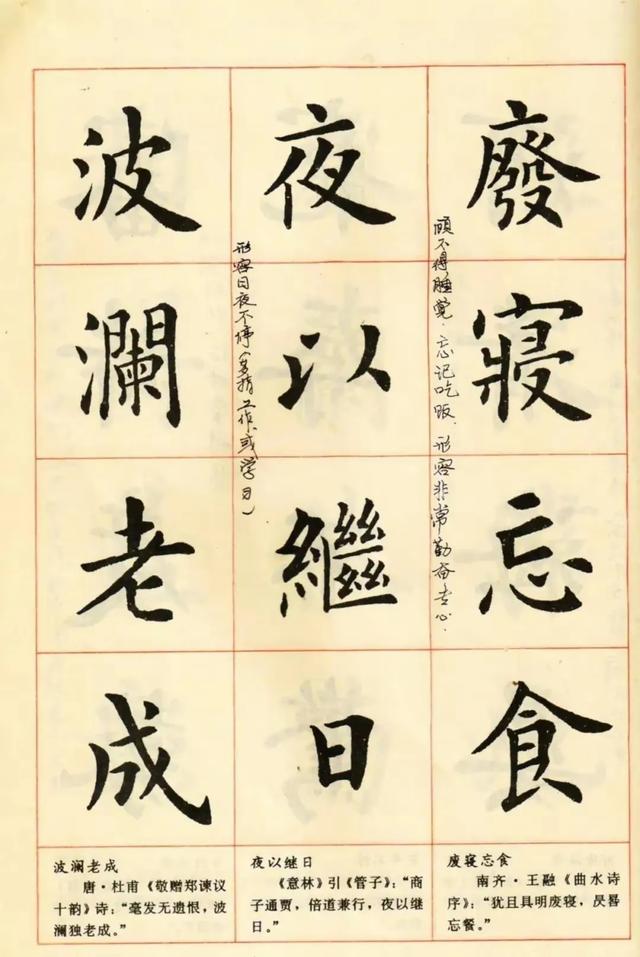 廢寢忘食
顾不得睡觉.忘记吃饭.形容非常勤奋专心.
夜以繼日
形容日夜不停(多指工作或学习)
波瀾老成
废寝忘食
南齐·王融《曲水诗
序》:“犹且具明废寝,昃晷
忘餐。”
夜以继日
《意林》引《管子》:“商
子通贾,倍道兼行,夜以继
日。”
波澜老成
唐·杜甫《敬赠郑谏议
十韵》诗:“毫发无遗恨,波
澜独老成。”